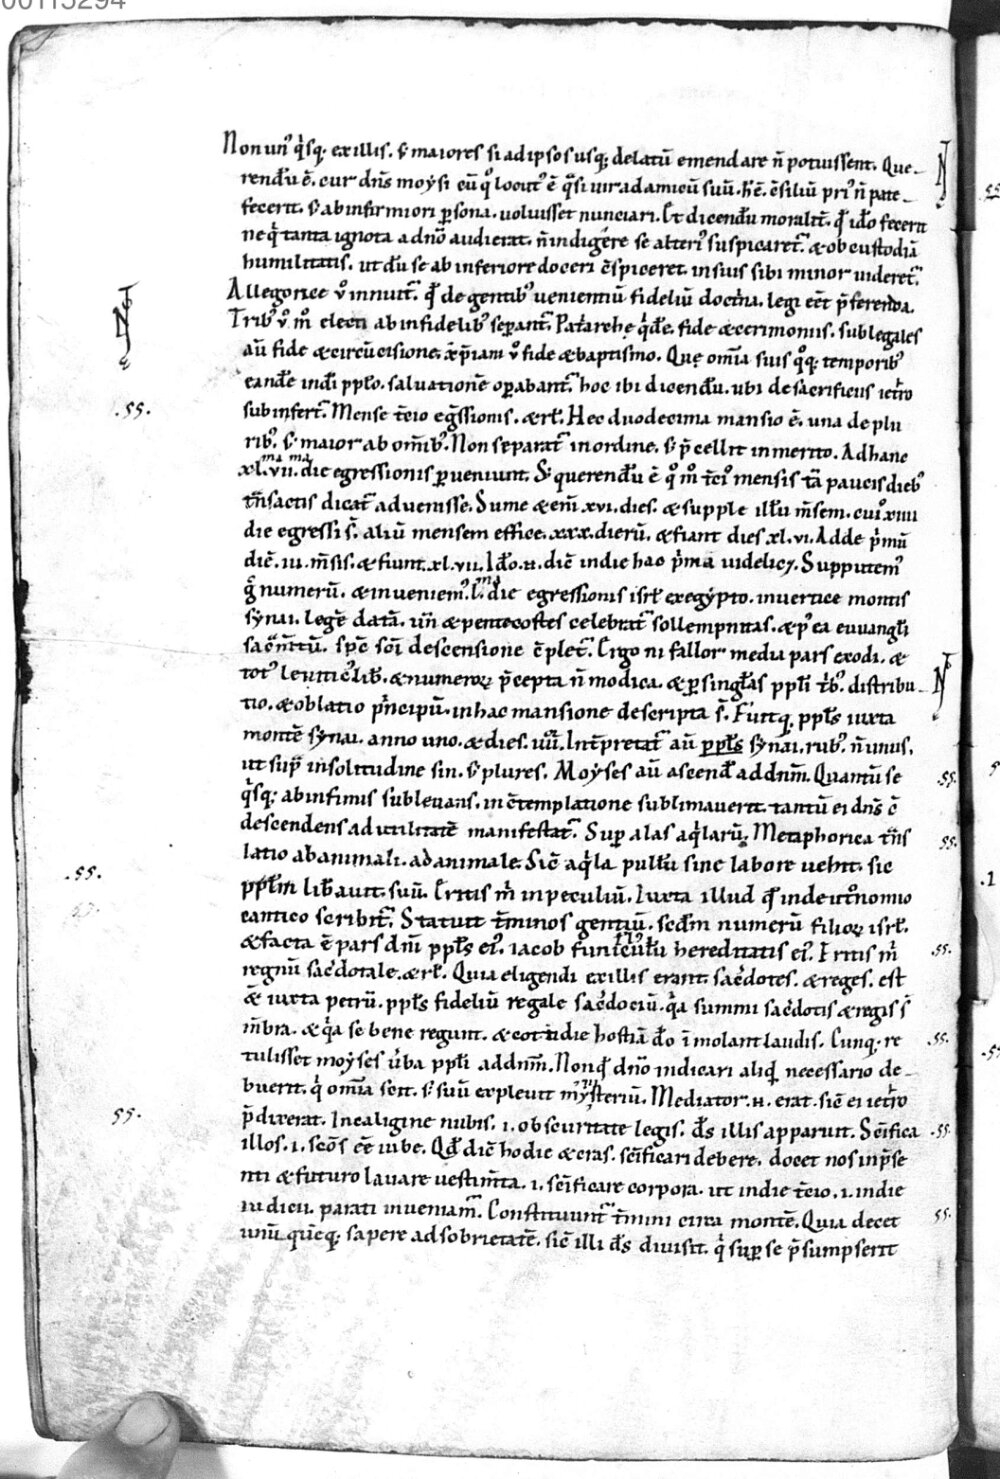 00115294
Non un᷒ qͥsq; ex illis. s; maiores si ad ipsos usq; delatū emendare n̄ potuissent. Que-
rend̄u ē. cur dn̄s moysi cū qͦ locut᷒ ē qͣsi uir ad amicū suū. h̄ ē. c̄siliū pri᷒ n̄ pate-
fecerit. s; ab infirmiori ꝑsona. uoluisset nunciari. Et dicend̄u moralit̄. qđ iđo fecerit
ne qͥ tanta ignota a dn̄o audierat. n̄ indigere se alteri᷒ suspicaret᷑. & ob custodiā
humilitatis. ut dū se ab inferiore doceri c̄spiceret. in suis sibi minor uideret᷑.
Allegorice uͦ innuit᷑. qđ de gentib᷒ uenientiū fideliū doctͥna. legi eēt p̄ferenda.
Trib᷒ uͦ m̊ electi ab infidelib᷒ seꝑant᷑. Patͥarche qͥdē. fide & cerimoniis. sub legales
aū fide & circūcisione. xp̄iam uͦ fide & baptismo. Que om̄ia suis qͦq; temporib᷒
eandē indi pplo. saluationē oꝑabant᷑. hoc ibi dicend̄u. ubi de sacrificiis ietͥro
sub infert᷑. Mense t̄cio egͣssionis. & rł. Hec duodecima mansio ē. una de plu
rib᷒. s; maior ab om̄ib᷒. Non separat᷑ in ordine. s; p̄cellit in merito. Ad hanc
xl.vii. die egressionis ꝑueniunt. S; querend̄u ē qͦ m̊ t̄cii mensis tā paucis dieb᷒
tͣnsactis dicat᷑ aduenisse. Sume & em̄ xvi. dies. & supple illū m̄sem. cui᷒ xiiii
die egressi s̄. aliū mensem effice. xxx. dierū. & fiant dies xl.vi. Adde pͥmū
diē. iii. m̄sis. & fiunt. xl.vii. Iđo.n. diē in die hac pͥma uidelicȝ. Supputem᷒
gͦ numerū. & inueniem᷒. l. die egressionis isrł ex egypto. in uertice montis
synai. legē datā. un̄ & pentecostes celebrat᷑ sollempnitas. & p᷒ ea euuangłi
sacͣm̄tū. sp̄c sc̄i descensione c̄plet᷑. Ergo ni fallor media pars exodi. &
tot᷒ leuitic᷒ lib̄. & numeroꝝ p̄cepta n̄ modica. & ꝑ singłas ppłi tͥb᷒ distribu-
tio. & oblatio pͥncipū. in hac mansione descripta s̄. Fuitq; ppłs iuxta
montē synai. anno uno. & dies. iiii. Int̄pretat᷑ aū ppłs synai. rub᷒ n̄ unus.
ut supͣ in solitudine sin. s; plures. Moyses aū ascend̄ ad dn̄m. Quantū se
qͥsq; ab infimis subleuans. in c̄templatione sublimauerit. tantū ei dn̄s ē
descendens ad utilitatē manifestat᷑. Super alas aqͥlarū. Metaphorica tͣns
latio ab animali. ad animale. Sic̄ aqͥla pullū sine labore uehit. sic
ppłm lib̄auit. suū. Eritis m̊ in peculiū. Iuxta illud qđ in deut̄onomio
cantico scribit᷑. Statuit t̄minos gentiū. secđm numerū filioꝝ isrł.
& facta ē pars dn̄i ppłs ei᷒. iacob funiculū hereditatis ei᷒. Eritis m̊
regnū sac̄dotale. & rł. Quia eligendi ex illis erant. sac̄dotes. & reges. est
& iuxta petrū. ppłs fideliū regale sac̄dociū. qͥa summi sac̄dotis & regis s̄
m̄bra. & qͥa se bene regunt. & cottidie hostiā đo īmolant laudis. Cunq; re
tulisset moyses ūba ppłi ad dn̄m. Non qđ dn̄o indicari aliqđ necessario de-
buerit. qͥ om̄ia scit. s; suū expleuit mysteriū. Mediator .n. erat. sic̄ ei ietͥro
p̄dixerat. In caligine nubis. i. obscuritate legis. đs illis apparuit. Sc̄ifica
illos. i. sc̄os eē iube. Qđ diē hodie & cras. sc̄ificari debere. docet nos in p̄se
nti & futuro lauare uestim̄ta. i. sc̄ificare corpora. ut in die t̄cio. i. in die
iudicii. parati inueniam᷑. Constituunt᷑ t̄mini circa montē. Quia decet
unū quēq; sapere ad sobrietatē. sic̄ illi đs diuisit. qͥ suꝑ se p̄sumpserit